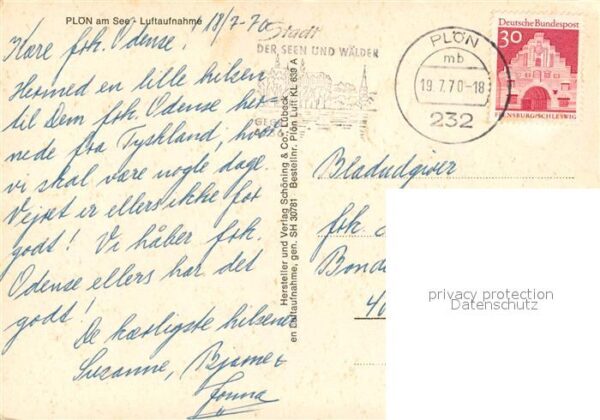 PLÖN am See - Luftaufnahme
18/7-70.
Kære frk. Odense!
Hermed en lille hilsen
til Dem frk. Odense her
nede fra Tyskland, hvor
vi skal være nogle dage.
Vejret er ellers ikke for
godt! Vi håber frk.
Odense ellers har det
godt!
De kærligste hilsener
Suzanne, Bjarne &
Jonna
Hersteller und Verlag Schöning & Co., Lübeck
en Luftaufnahme, gen. SH 30781 Bestellnr. Plön Luft KL 639 A
Stadt
DER SEEN UND WÄLDER
PLÖN
mb
19.7.70-18
232
Deutsche Bundespost
30
FLENSBURG/SCHLESWIG
Bladudgiver
frk.
40
privacy protection
Datenschutz